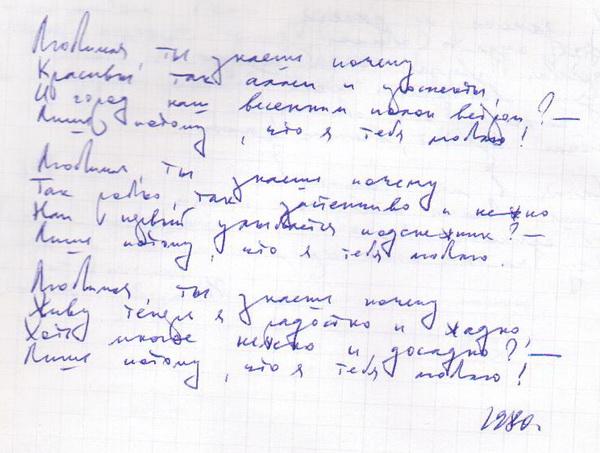 Любимая, ты знаешь почему
Красивы так аллеи и проспекты,
И город наш весенним полон ветром? —
Лишь потому, что я тебя люблю!
Любимая, ты знаешь почему
Так робко, так застенчиво и нежно
Нам первый улыбается подснежник? —
Лишь потому, что я тебя люблю.
Любимая, ты знаешь почему
Живу теперь я радостно и жадно,
Хоть и досадно? —
Лишь потому, что я тебя люблю!
1980г.